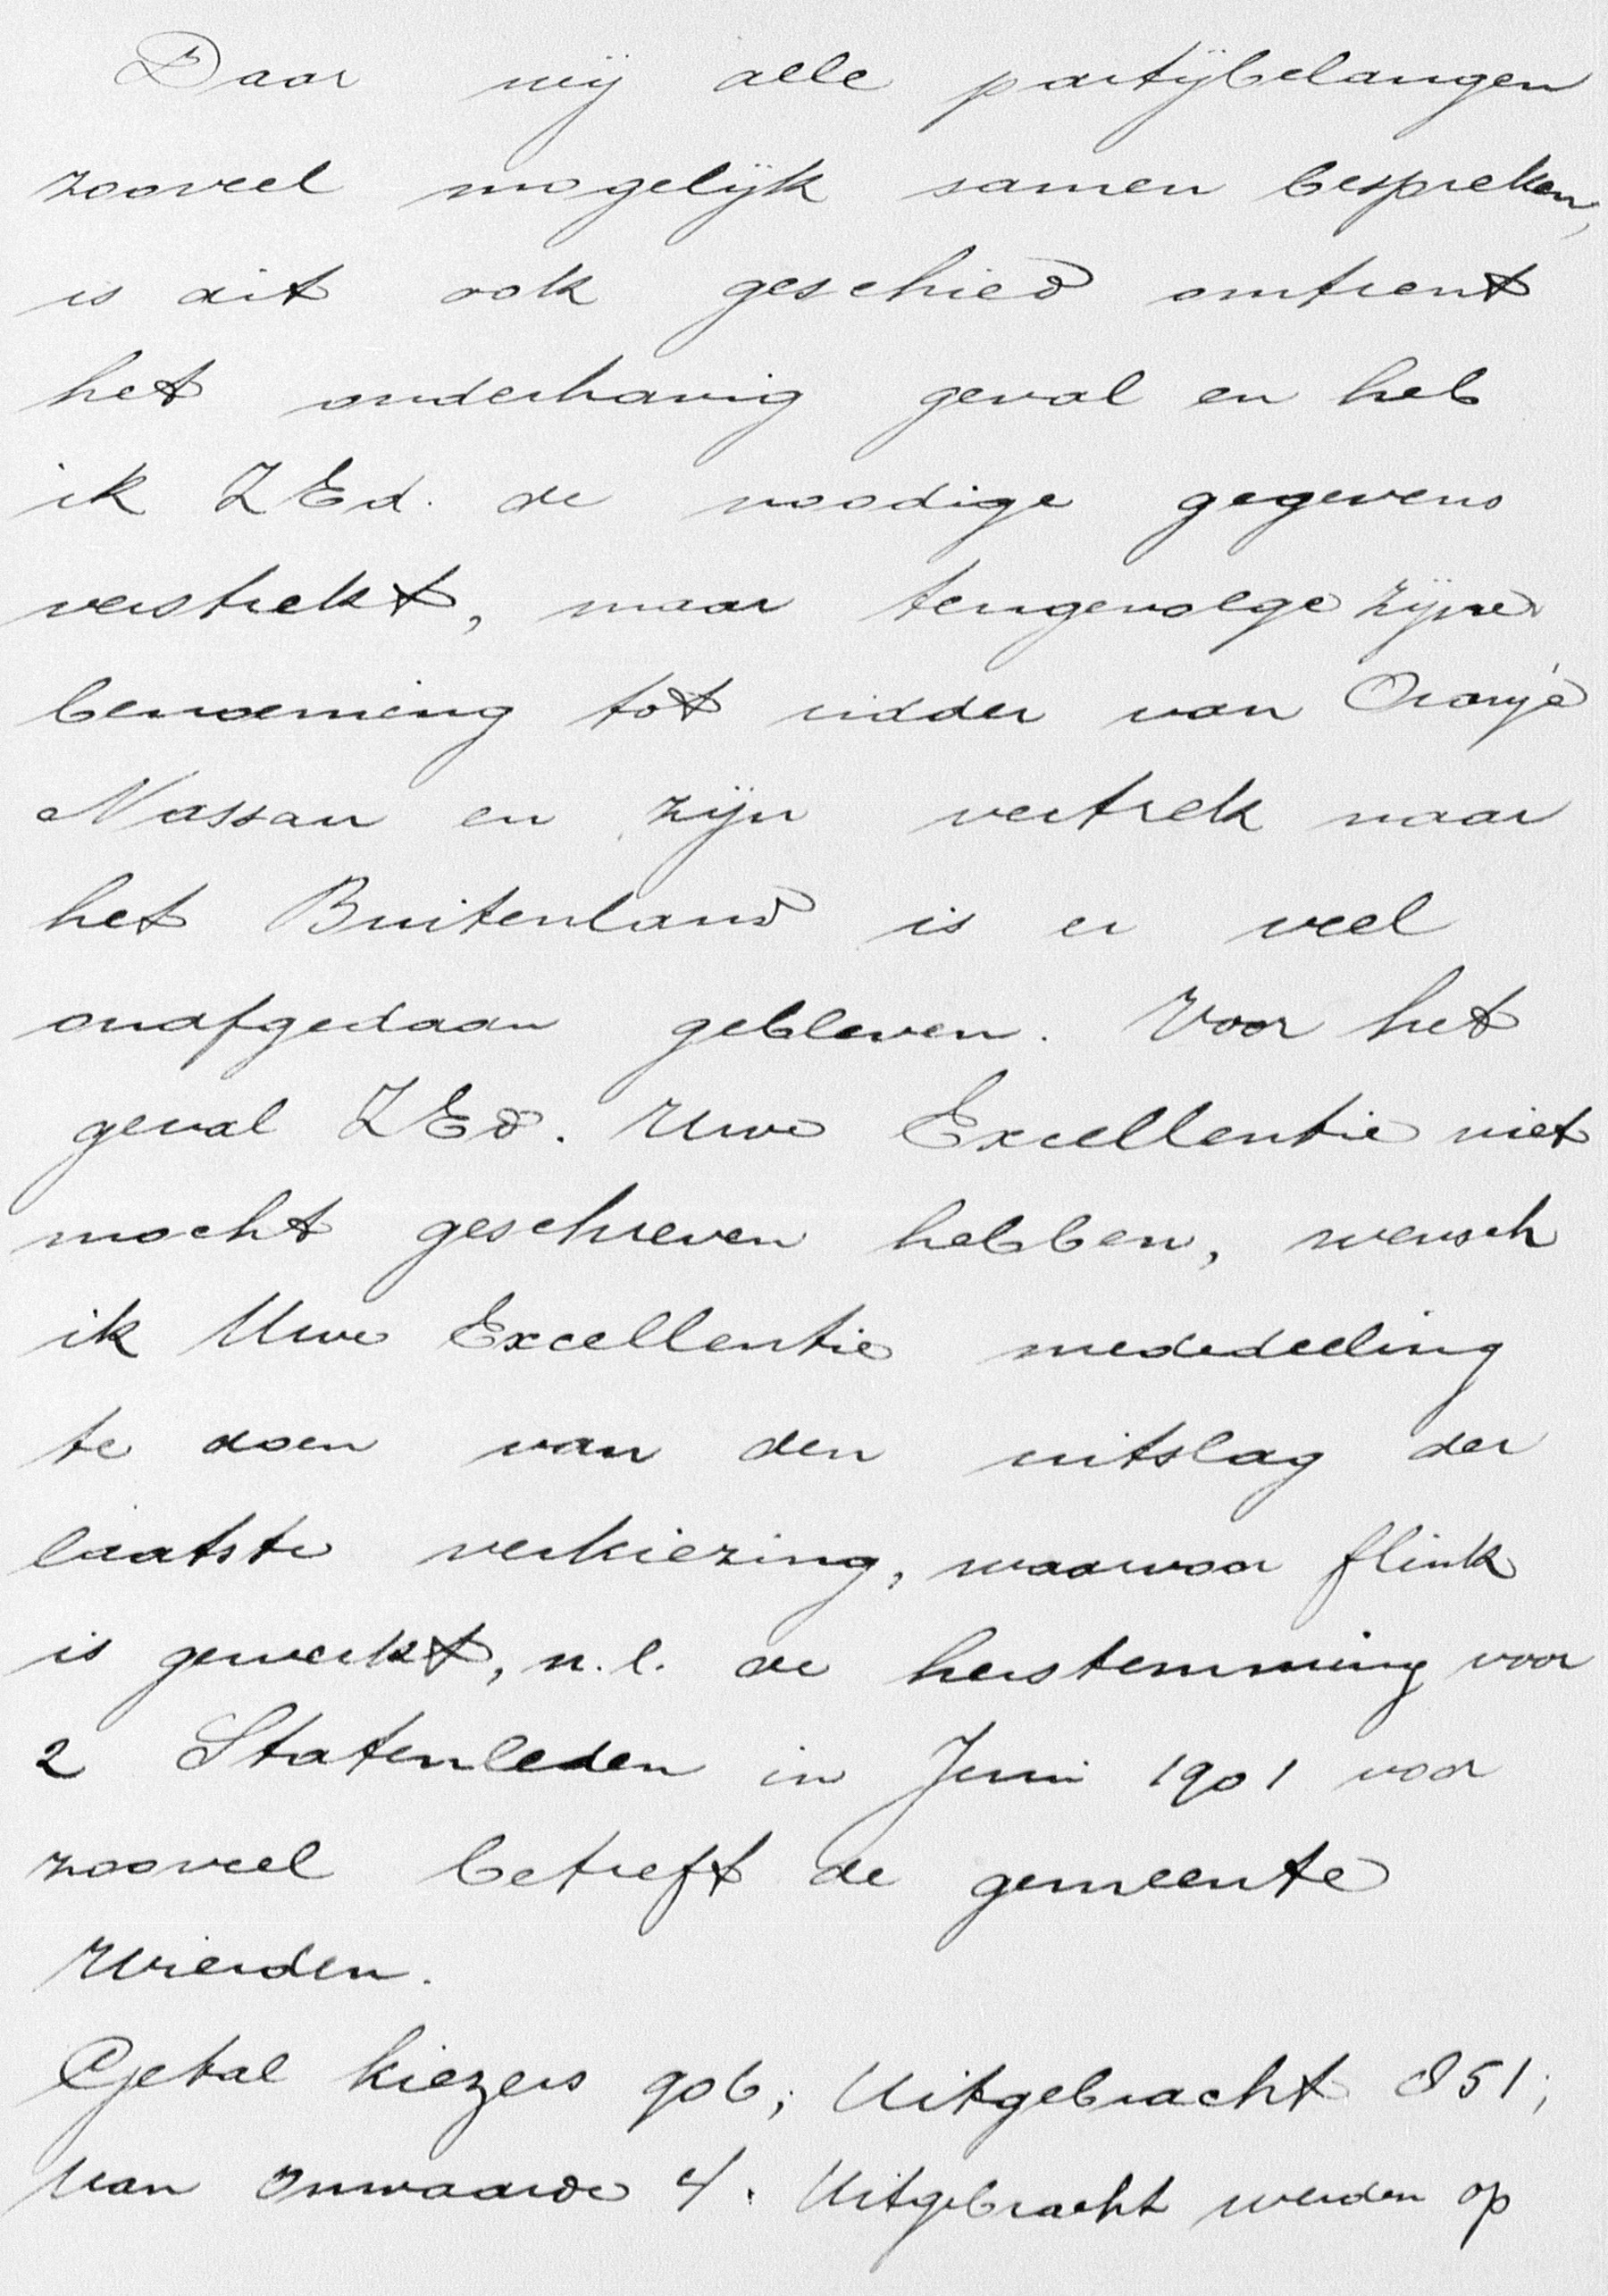 Daar wij alle partijbelangen
zooveel mogelijk samen bespreken,
is dit ook geschied omtrent
het onderhavig geval en heb
ik ZEd. de noodige gegevens
verstrekt, maar tengevolge zijne
benoeming tot ridder van Oranje
Nassau en zijn vertrek naar
het Buitenland is er veel
onafgedaan gebleven. Voor het
geval ZEd. Uwe Excellentie niet
mocht geschreven hebben, wensch
ik Uwe Excellentie mededeeling
te doen van den uitslag der
laatste verkiezing, waarvoor flink
is gewerkt, n.l. de herstemming voor
2 Statenleden in Juni 1901 voor
zooveel betreft de gemeente
Wierden.
Getal kiezers 906; Uitgebracht 851;
Van onwaarde 4. Uitgebracht werden op